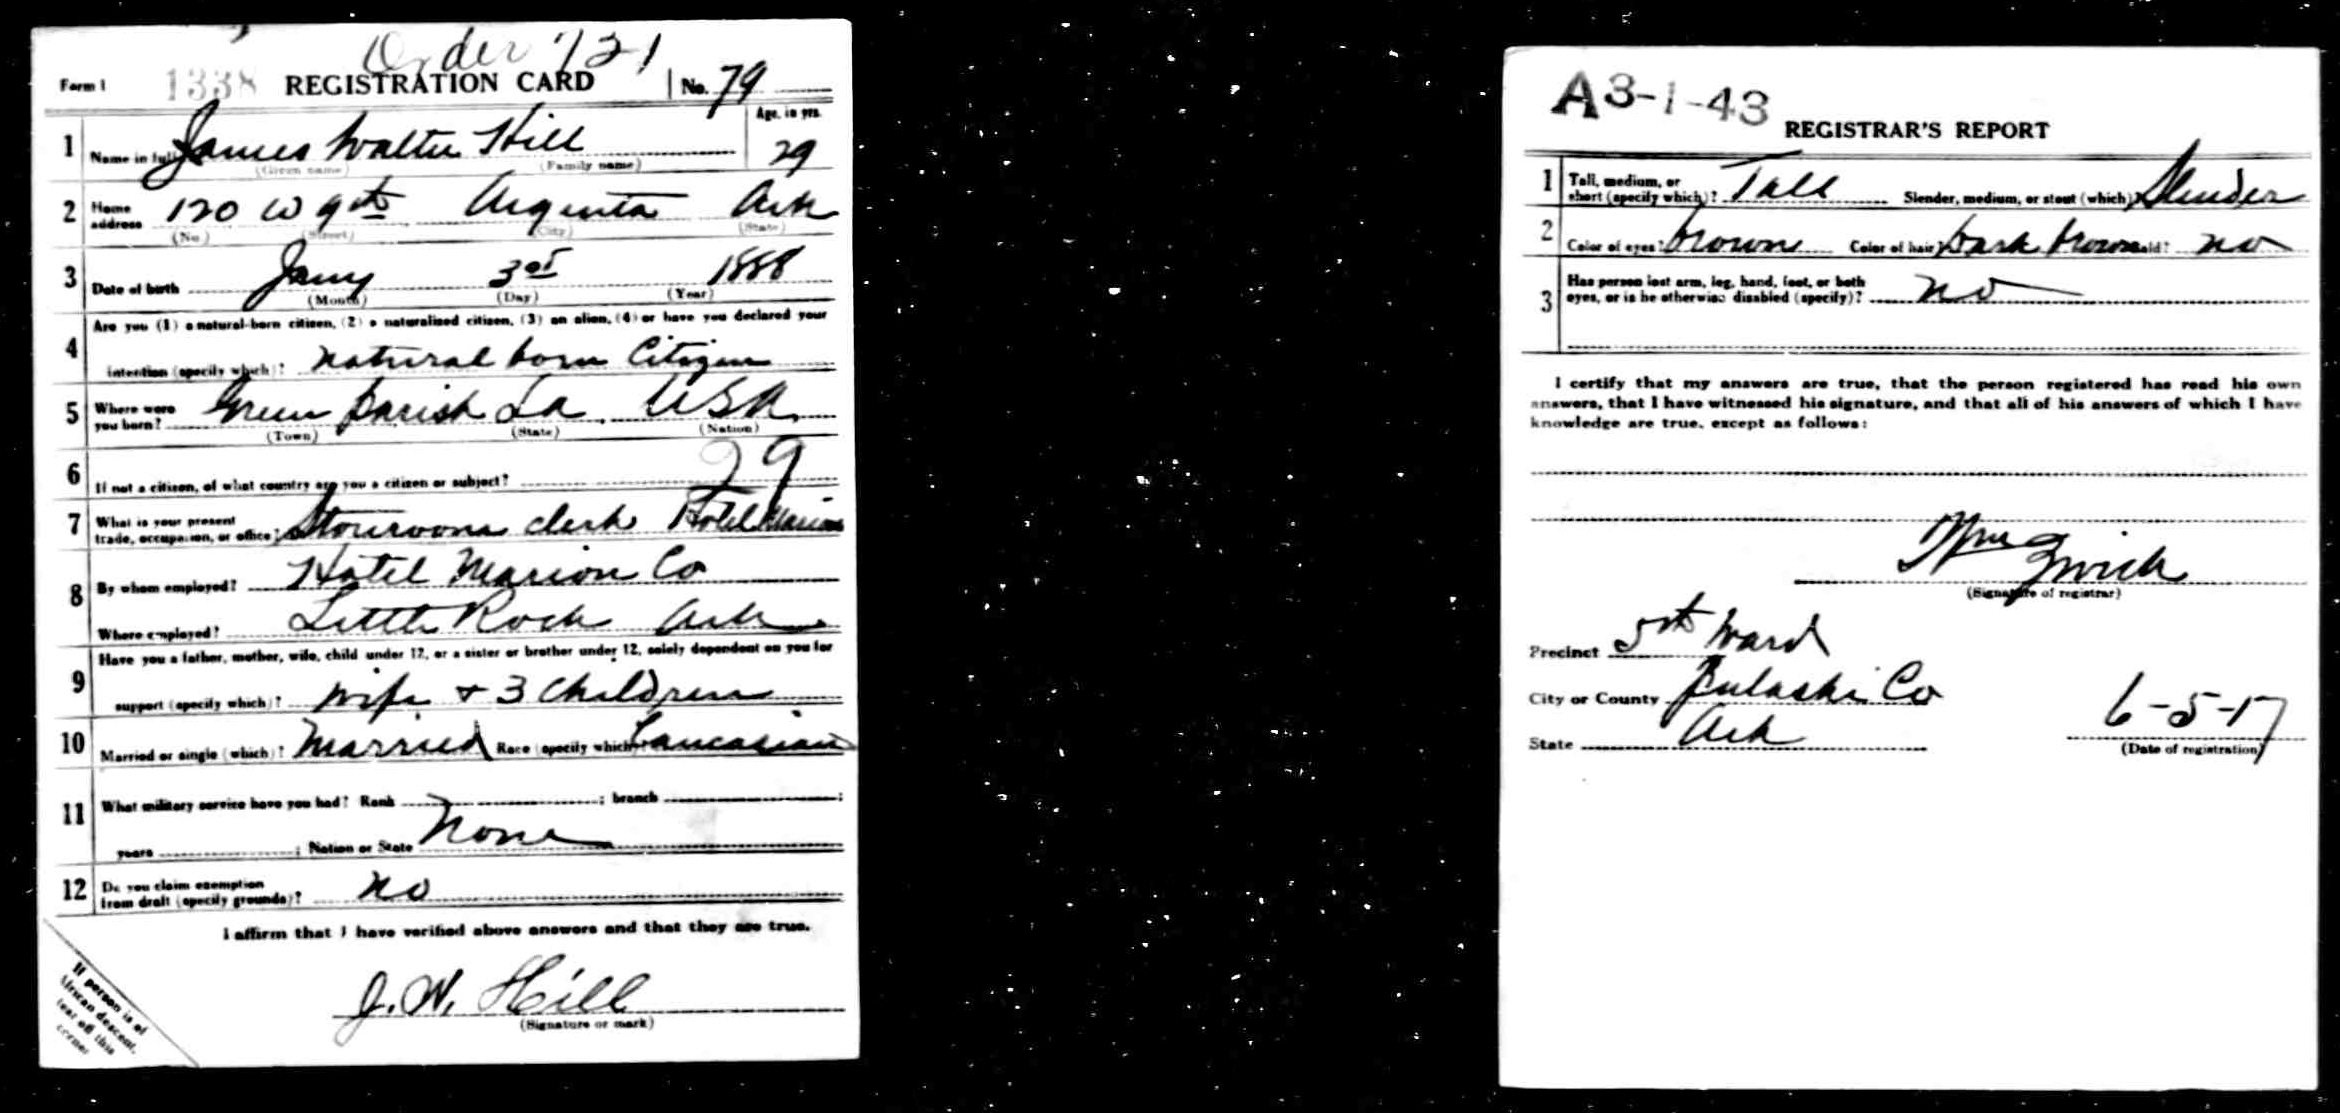 Order 721
Form 1 1338 REGISTRATION CARD No. 79
Age, in yrs.
1 Name in full James Walter Hill 29
(Given name) (Family name)
2 Home address 120 W 9th Argenta Ark
(No.) (Street) (City) (State)
3 Date of birth Jany 3rd 1888
(Month) (Day) (Year)
Are you (1) a natural-born citizen, (2) a naturalized citizen, (3) an alien, (4) or have you declared your
4 intention (specify which)? natural born Citizen
5 Where were you born? Green Parish La USA
(Town) (State) (Nation)
29
6 If not a citizen, of what country are you a citizen or subject?
7 What is your present trade, occupation, or office? Storeroom clerk Hotel Marion
8 By whom employed? Hotel Marion Co
Where employed? Little Rock Ark
Have you a father, mother, wife, child under 12, or a sister or brother under 12, solely dependent on you for
9 support (specify which)? wife + 3 Children
10 Married or single (which)? Married Race (specify which)? Caucasian
11 What military service have you had? Rank ; branch ;
years ; Nation or State None
12 Do you claim exemption from draft (specify grounds)? no
I affirm that I have verified above answers and that they are true.
J. W. Hill
(Signature or mark)
If person is of
African descent,
tear off this
corner
A3-1-43
REGISTRAR'S REPORT
1 Tall, medium, or short (specify which)? Tall Slender, medium, or stout (which)? Slender
2 Color of eyes? brown Color of hair? Dark brown Bald? no
3 Has person lost arm, leg, hand, foot, or both
eyes, or is he otherwise disabled (specify)? no
I certify that my answers are true, that the person registered has read his own
answers, that I have witnessed his signature, and that all of his answers of which I have
knowledge are true, except as follows:
Wm
(Signature of registrar)
Precinct 5th Ward
City or County Pulaski Co
State Ark 6-5-17
(Date of registration)